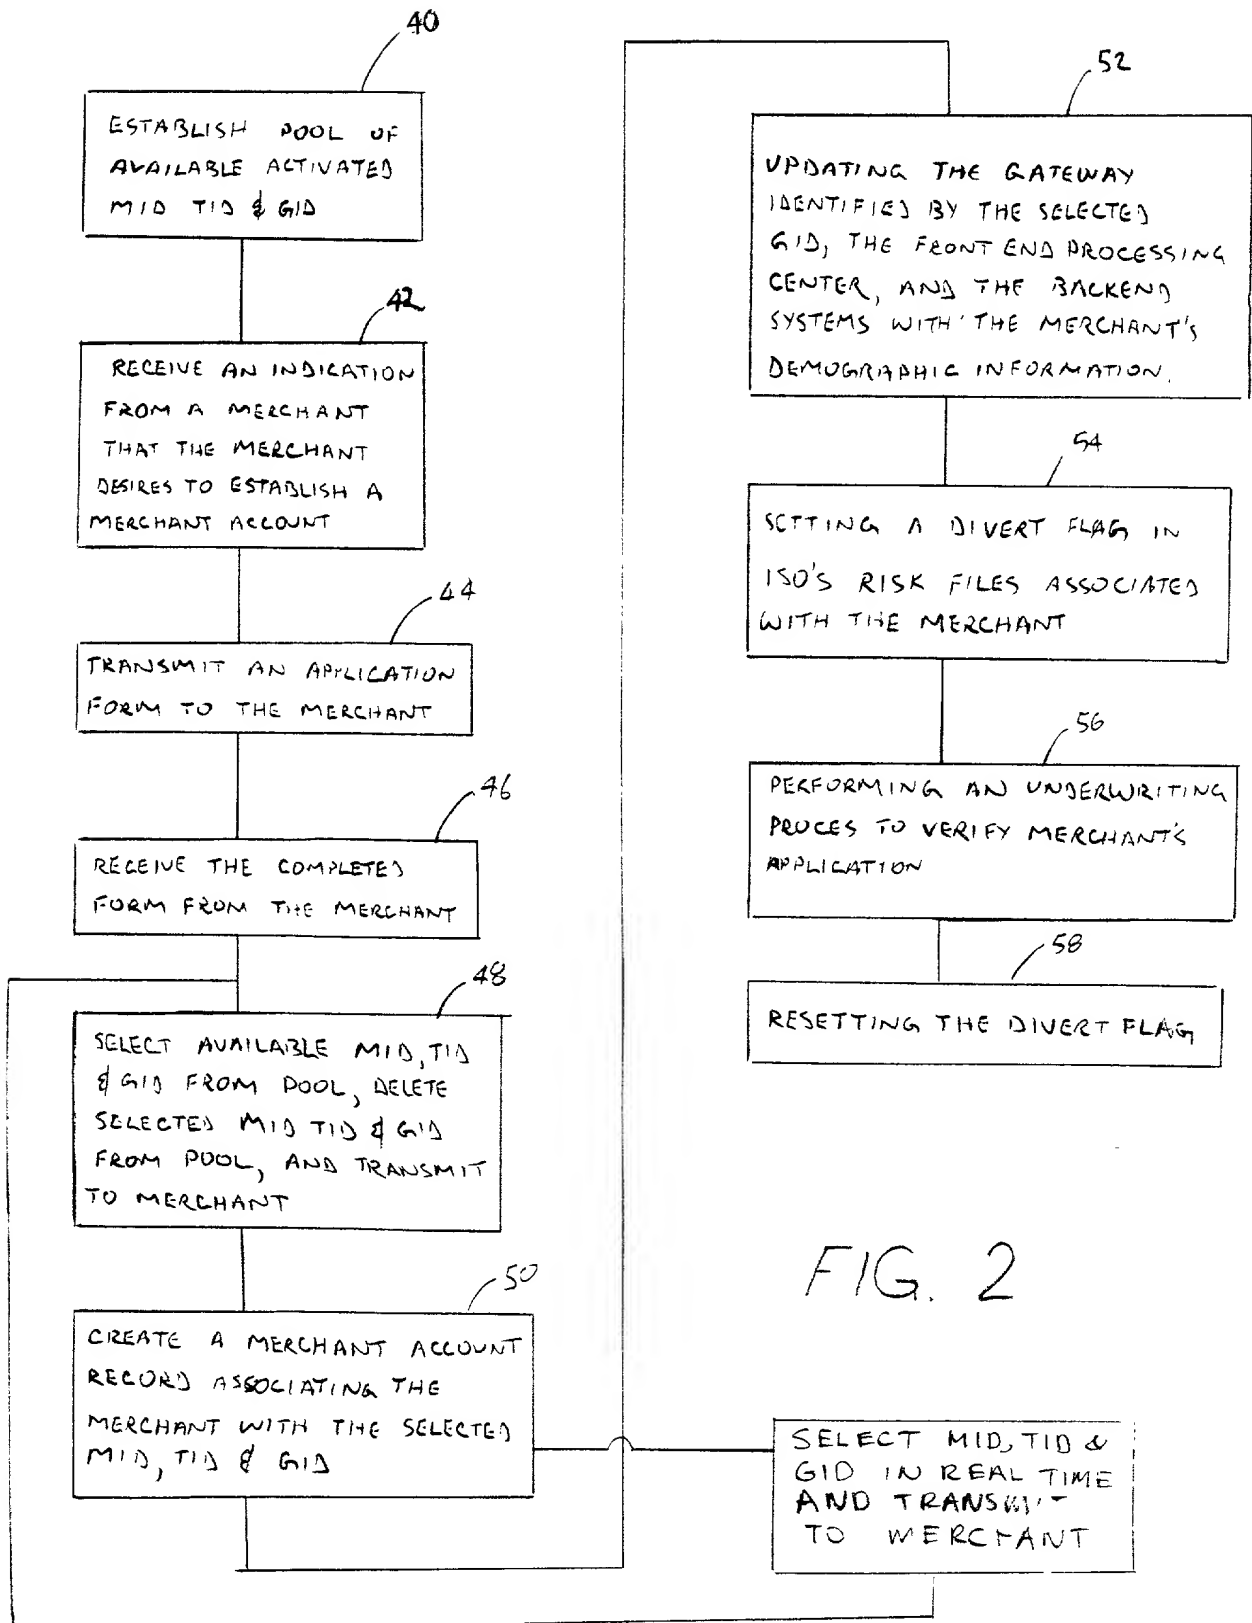 40
ESTABLISH POOL OF
AVAILABLE ACTIVATED
MID TID & GID
42
RECEIVE AN INDICATION
FROM A MERCHANT
THAT THE MERCHANT
DESIRES TO ESTABLISH A
MERCHANT ACCOUNT
44
TRANSMIT AN APPLICATION
FORM TO THE MERCHANT
46
RECEIVE THE COMPLETED
FORM FROM THE MERCHANT
48
SELECT AVAILABLE MID, TID
& GID FROM POOL, DELETE
SELECTED MID TID & GID
FROM POOL, AND TRANSMIT
TO MERCHANT
50
CREATE A MERCHANT ACCOUNT
RECORD ASSOCIATING THE
MERCHANT WITH THE SELECTED
MID, TID & GID
52
UPDATING THE GATEWAY
IDENTIFIED BY THE SELECTED
GID, THE FRONT END PROCESSING
CENTER, AND THE BACKEND
SYSTEMS WITH THE MERCHANT'S
DEMOGRAPHIC INFORMATION.
54
SETTING A DIVERT FLAG IN
ISO'S RISK FILES ASSOCIATED
WITH THE MERCHANT
56
PERFORMING AN UNDERWRITING
PROCES TO VERIFY MERCHANT'S
APPLICATION
58
RESETTING THE DIVERT FLAG
FIG. 2
SELECT MID, TID &
GID IN REAL TIME
AND TRANSMIT
TO MERCHANT